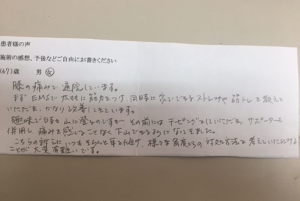 患者様の声
施術の感想、予後などご自由にお書きください
(67)歳 男 女
膝の痛みで通院しています。
まず自分なりに 筋力をつけ、同時に 家でできるストレッチや筋トレを教えて
いただき、かなり改善してきています。
趣味で 山に登るのですが その前には テーピングをしていただき、サポーターも
併用し 痛みを感じることなく下山できるようになりました。
こちらの訴えに いつも きちんと耳を傾け、様々な角度からの対処方法を考えていただける
ことが 大変有難いです。